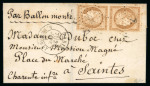 Par Ballon monté
Madame Duboc chez
Monsieur Massiou Magné
Place du Marché
à Saintes
Charente infre